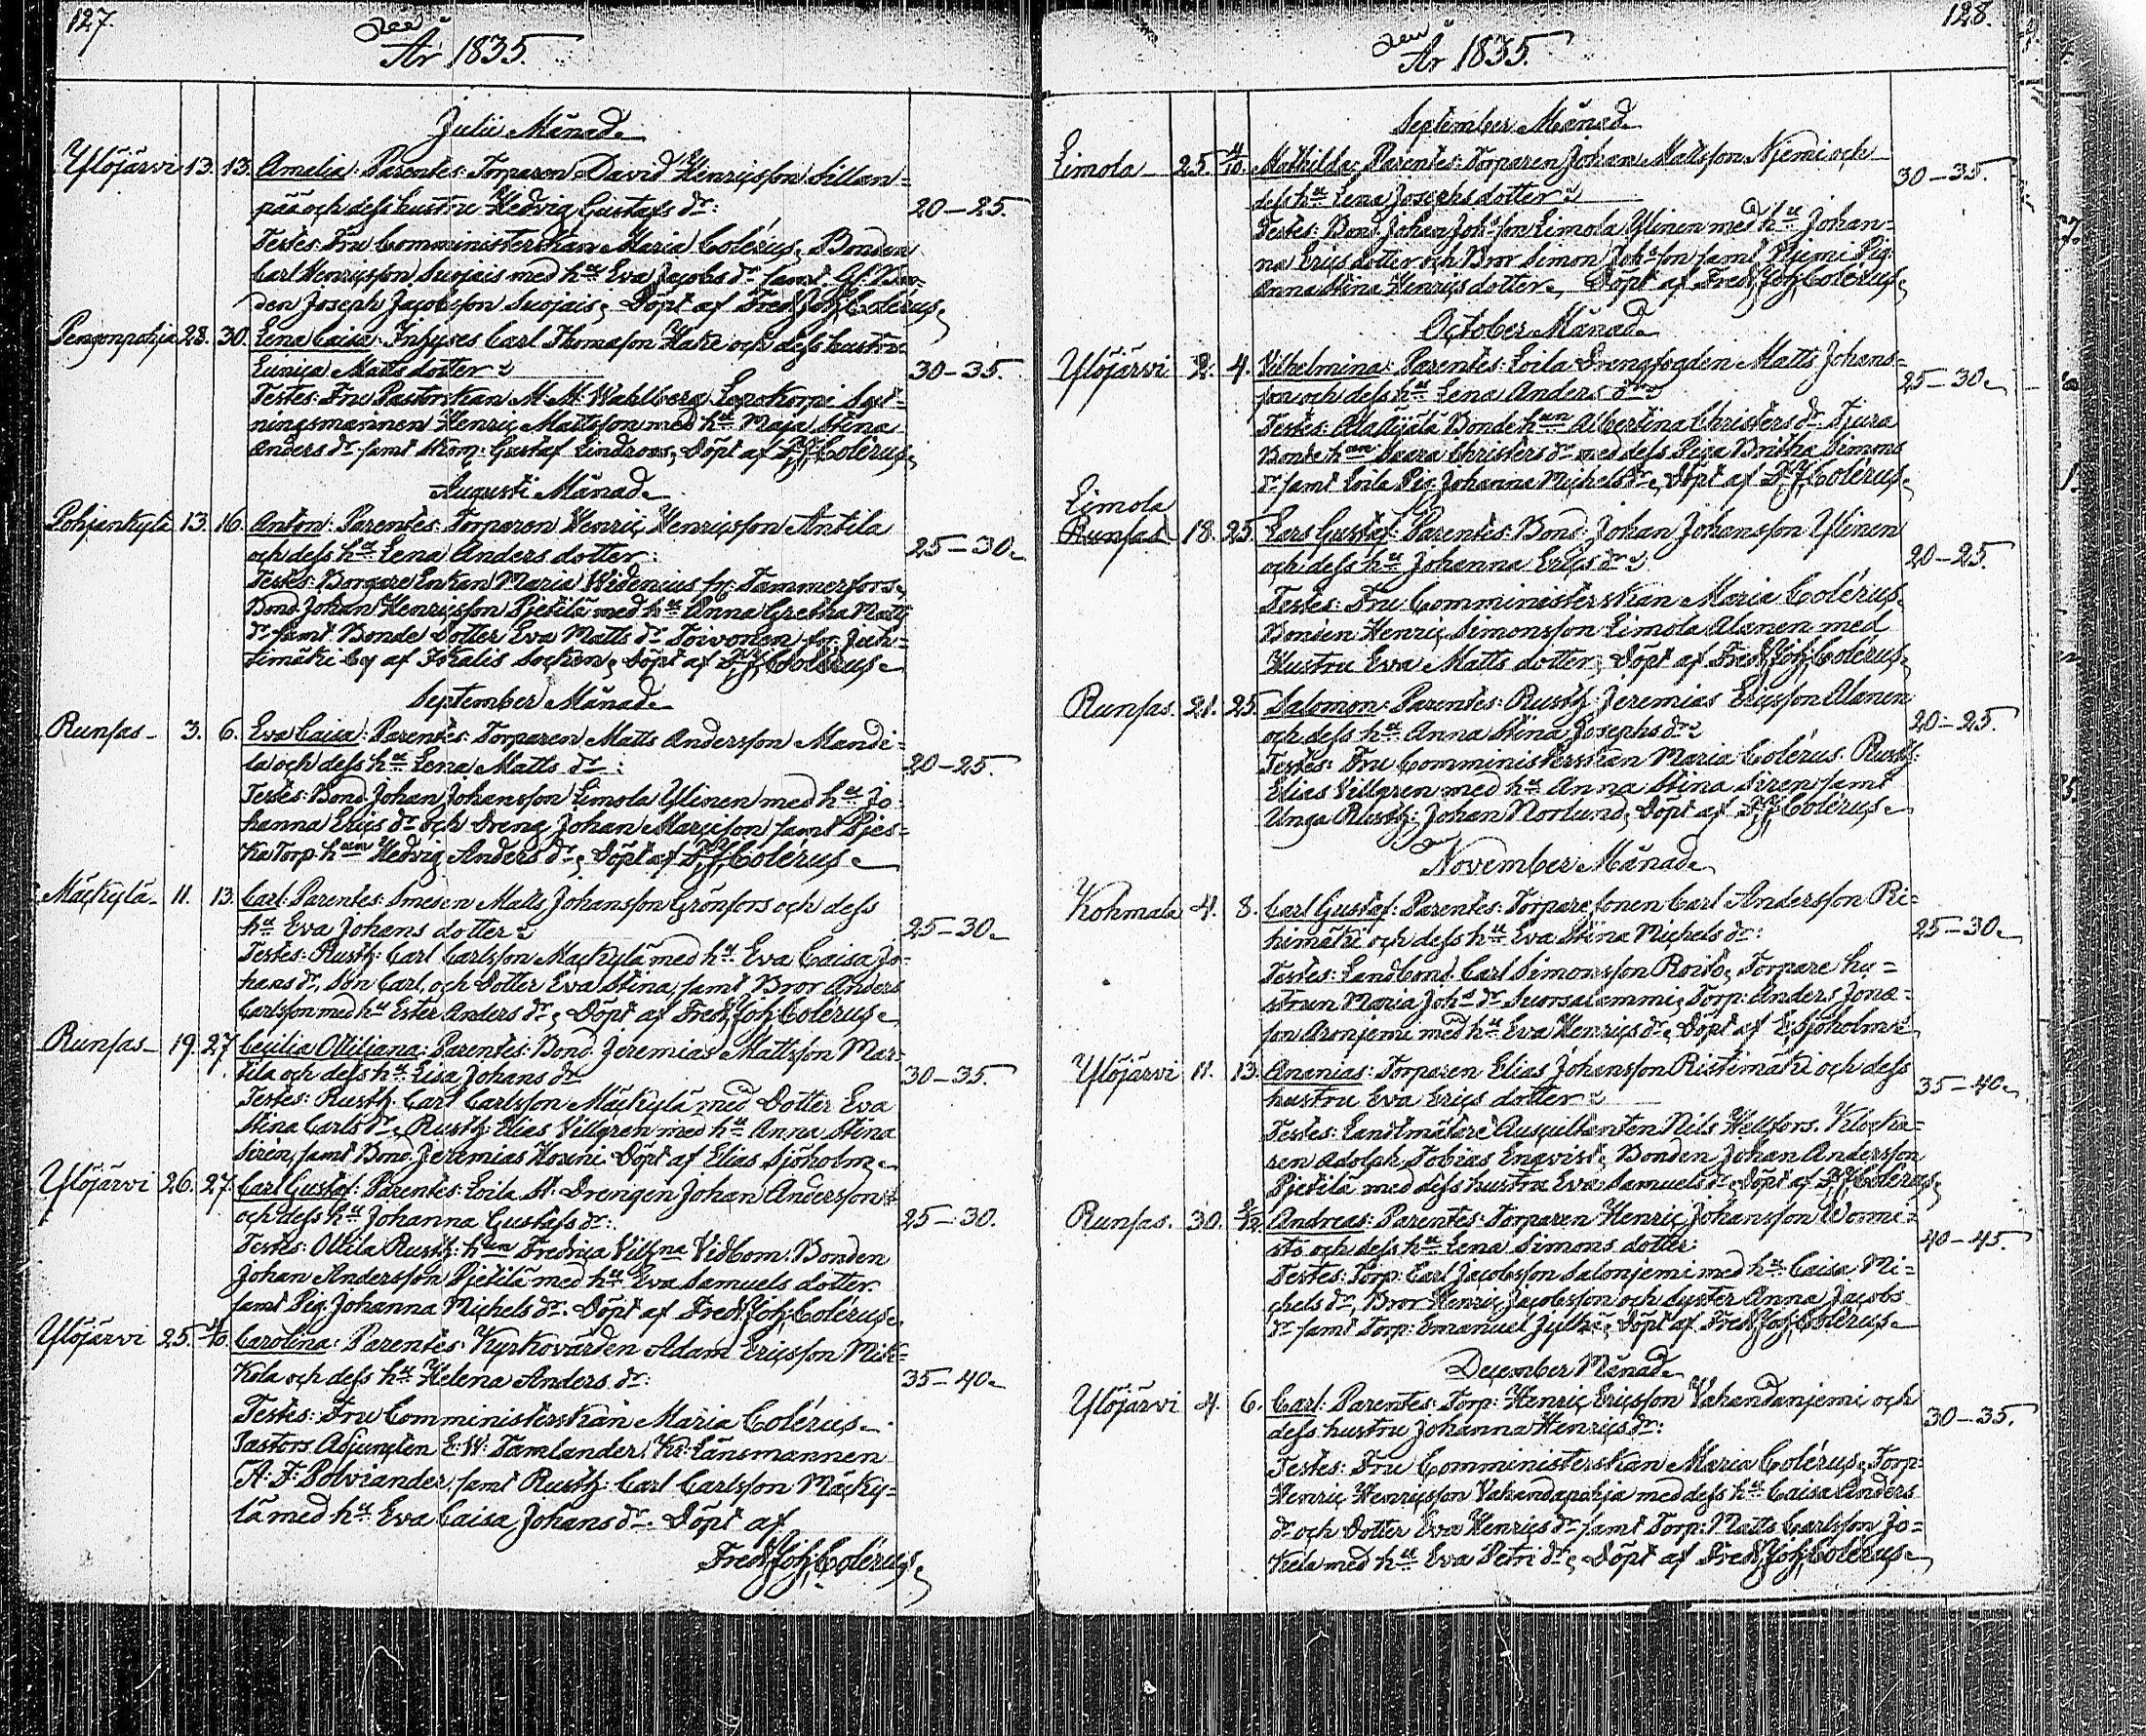 127.
År 1835.
Julii Månad
Ylöjärvi 13. 13. Amelia: Parentes: Torparen David Henricsson Sillan=
pää och dess hustru Hedvig Gustafs dr: 20-25.
Testes: Fru Comministerskan Maria Colérus, Bonden
Carl Henricsson Suojais med hu Eva Jacobs dr samt
den Joseph Jacobsson Suojais, Döpt af Fred. Joh. Colérus.
Pengonpohja 28. 30. Lena Caisa: Inhyses Carl Thomasson Hake och dess hustru
Matts dotter 30-35.
Testes: Fru Pastorskan M. M. Wahlberg, Lepokorpi
ningsmannen Henric Mattsson med hu Maja Stina
Anders dr samt Gustaf Lindroos, Döpt af F. J. Colérus.
Augusti Månad
Pohjankylä 13. 16. Anton: Parentes: Torparen Henric Henricsson Antila
och dess hu Lena Anders dotter: 25-30.
Testes: Borgare Enkan Maria Widenius fr. Tammerfors,
Bond. Johan Henricsson Pjetilä med hu Anna Gretha Matts
dr samt Bonde dotter Eva Matts dr Toivonen fr.
timäki by af Ikalis Socken, Döpt af F. J. Colérus.
September Månad
Runsas 3. 6. Eva Caisa: Parentes: Torparen Matts Andersson Mandi=
la och dess hu Lena Matts dr: 20-25.
Testes: Bond. Johan Johansson Limola Ylinen med hu Jo=
hanna Erics dr och Dreng Johan samt Pjes=
ka Torp. hun Hedvig Anders dr, Döpt af F. J. Colérus.
Mäckylä 11. 13. Carl: Parentes: Smeden Matts Johansson Grönfors och dess
hu Eva Johans dotter 25-30.
Testes: Rusth: Carl Carlsson Mackylä med hu Eva Caisa Jo=
hans dr, Son Carl, och Dotter Eva Stina, samt Bror Anders
Carlsson med hu Ester Anders dr, Döpt af Fred. Joh. Colérus.
Runsas 19. 27. Cecilia Otiliana: Parentes: Bond. Jeremias Mattsson Mar=
tila och dess hu Lisa Johans dr 30-35.
Testes: Rusth. Carl Carlsson Mäckylä med Dotter Eva
Stina Carls dr, Rusth: Elias Villgren med hu Anna Stina
Sirén, samt Bond. Jeremias Döpt af Elias Sjöholm.
Ylöjärvi 26. 27. Carl Gustaf: Parentes: Loila St. Drengen Johan Andersson
och dess hu Johanna Gustafs dr: 25-30.
Testes: Ollila Rusth: hun Fredrica Vilhna Vidbom. Bonden
Johan Andersson Pjetilä med hu Eva Samuels dotter.
samt Pig. Johanna Michels dr. Döpt af Fred. Joh. Colérus.
Ylöjärvi 25. 4/10. Carolina: Parentes: Kyrkovärden Adam Ericsson Mik=
kola och dess hu Helena Anders dr: 35-40.
Testes: Fru Comministerskan Maria Colérus.
Pastors Adjuncten E. W. Tamlander, Kr: Länsmannen
A. F. Polviander, samt Rusth: Carl Carlsson Mäcky=
lä med hu Eva Caisa Johans dr. Döpt af
Fred. Joh. Colérus.
128.
År 1835.
September Månad
Limola 25 4/10. Mathilda: Parentes: Torparen Johan Mattsson Njemi och
dess hu Lena Josephs dotter 30-35.
Testes: Bond. Johan Johsson Limola Ylinen med hu Johan=
na Erics dotter och Bror Simon Johsson samt Njemi Pig.
Anna Stina Henrics dotter, Döpt af Fred. Joh. Colérus.
October Månad
Ylöjärvi 2. 4. Vilhelmina: Parentes: Loila Drengfogden Matts Johans=
son och dess hu Lena Anders dr 25-30.
Testes: Bonde hun Albertina Christers dr, Tjura
Bonde hun Saara Christers dr med dess Piga Britha Simons
dr samt Loila Pig. Johanna Michels dr, Döpt af F. J. Colérus.
Limola
Runsas 18. 25. Lars Gustaf: Parentes: Bond: Johan Johansson Ylinen
och dess hu Johanna Erics dr 20-25
Testes: Fru Comministerskan Maria Colérus.
Bonden Henric Simonsson Limola Alanen med
Hustru Eva Matts dotter, Döpt af Fred. Joh. Colérus.
Runsas. 21. 25. Salomon: Parentes: Rusth: Jeremias Ericsson Alanen
och dess hu Anna Stina Josephs dr 20-25.
Testes: Fru Comministerskan Maria Colérus. Rusth:
Elias Villgren med hu Anna Stina Siren samt
Unga Rusth: Johan Norlund, Döpt af F. J. Colérus.
November Månad
Kohmala 4. 8. Carl Gustaf: Parentes: Torparesonen Carl Andersson Ri=
himäki och dess hu Eva Stina Michels dr: 25-30.
Testes: Landbond. Carl Simonsson Roito, Torpare hu=
strun Maria Joh. dr Suorsalammi, Torp: Anders Jona=
son Aronjemi med hu Eva Henrics dr, Döpt af E. Sjöholm
Ylöjärvi 11. 13. Ananias: Torparen Elias Johansson Ristimäki och dess
hustru Eva Erics dotter 35-40.
Testes: Landtmäteri Auscultanten Nils Hellfors. Klocka=
ren Adolph Tobias Enqvist, Bonden Johan Andersson
Pjetilä med dess hustru Eva Samuels dr, Döpt af F. J. Colérus.
Runsas. 30. 2/12. Andreas: Parentes: Torparen Henric Johansson Wormi=
sto och dess hu Lena Simons dotter: 40-45.
Testes: Torp: Carl Jacobsson Salonjemi med hu Caisa Mi=
chels dr, Bror Henric Jacobsson och syster Anna Jacobs
dr samt Torp: Emanuel Döpt af Fred. Joh. Colérus.
December Månad
Ylöjärvi 4. 6. Carl: Parentes: Torp: Henric Ericsson Vahandanjemi och
dess hustru Johanna Henrics dr: 30-35.
Testes: Fru Comministerskan Maria Colérus, Torp:
Henric Henricsson Vahandapohja med dess hu Caisa Anders
dr och Dotter Eva Henrics dr samt Torp: Matts Carlsson Jo=
kela med hu Eva Petri dr, Döpt af Fred. Joh. Colérus.